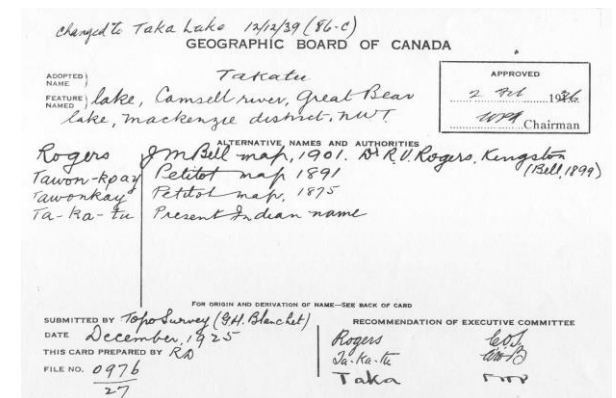 changed to Taka Lake 12/12/39 (86-C)
GEOGRAPHIC BOARD OF CANADA
ADOPTED NAME Takatu
APPROVED
FEATURE NAMED lake, Camsell river, Great Bear
lake, Mackenzie district, NWT.
2 1936
Chairman
ALTERNATIVE NAMES AND AUTHORITIES
Rogers J M Bell map, 1901. Dr R.V. Rogers, Kingston
(Bell, 1899)
Tawon-kpay Petitot map 1891
Tawonkay Petitot map, 1875
Ta-ka-tu Present Indian name
FOR ORIGIN AND DERIVATION OF NAME—SEE BACK OF CARD
SUBMITTED BY Topo Survey (G.H. Blanchet)
DATE December, 1925
THIS CARD PREPARED BY RD
FILE NO. 0976
27
RECOMMENDATION OF EXECUTIVE COMMITTEE
Rogers
Ta-ka-tu
Taka